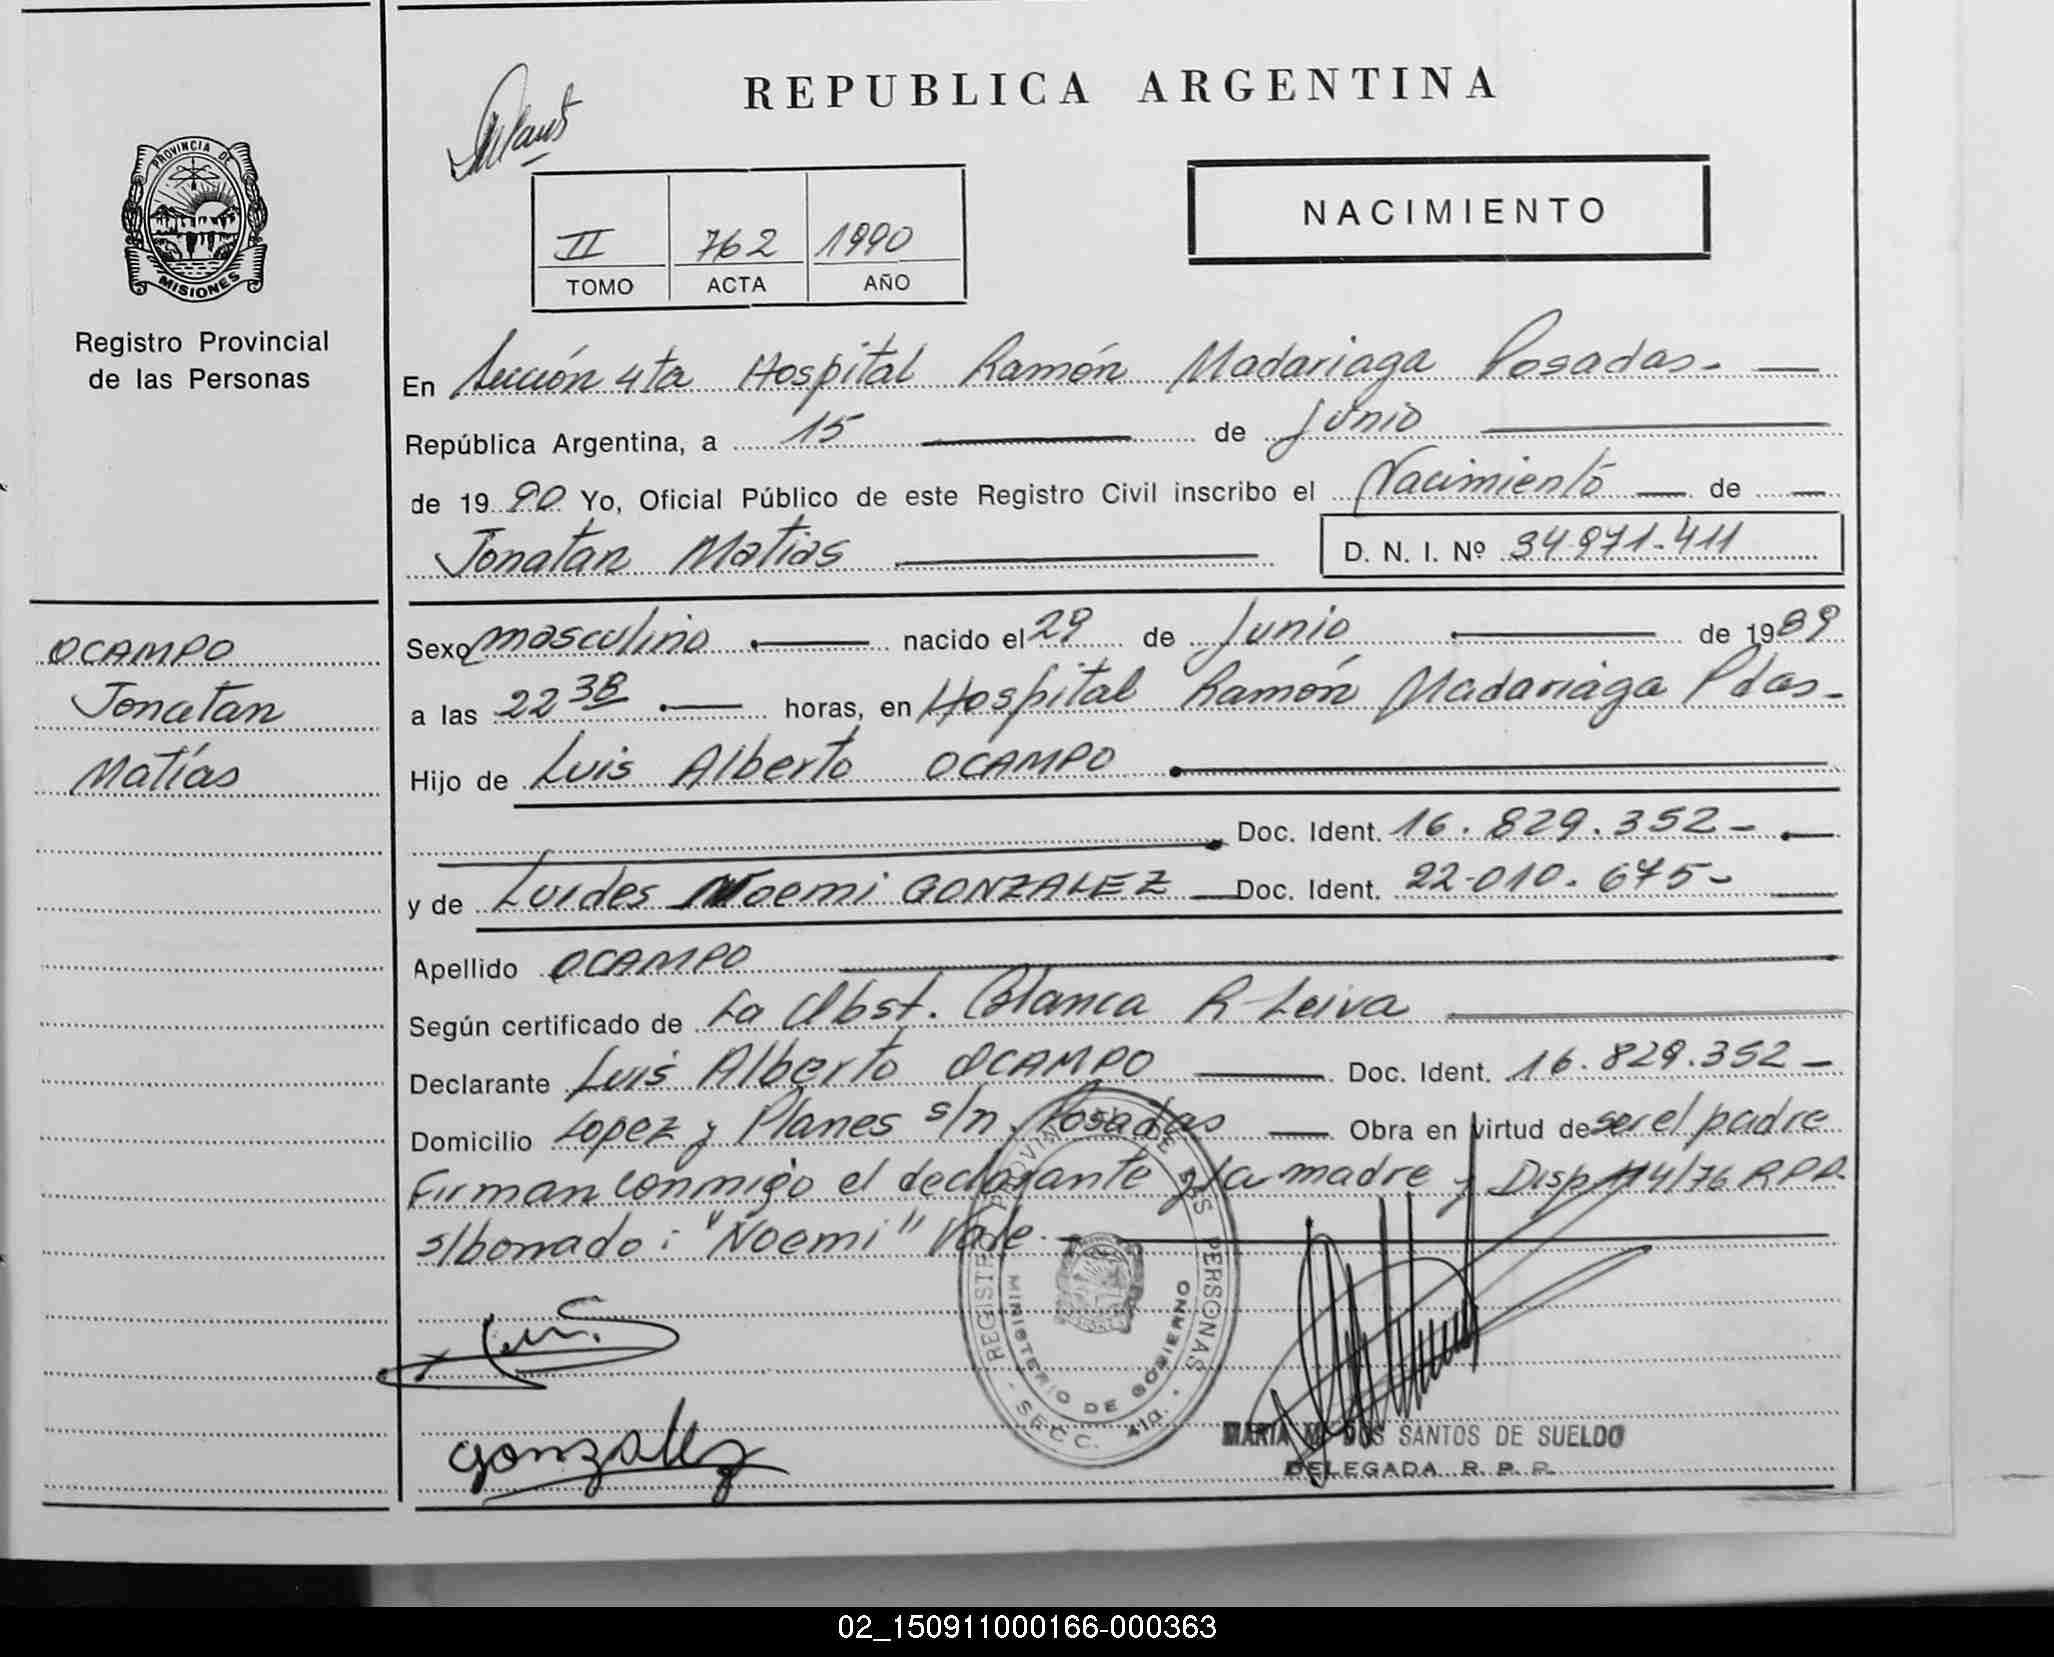 REPUBLICA ARGENTINA
PROVINCIA DE
MISIONES
Registro Provincial
de las Personas
NACIMIENTO
II 762 1990
TOMO ACTA AÑO
En Sección 4ta Hospital Ramón Madariaga Posadas.
República Argentina, a 15 de Junio
de 1990 Yo, Oficial Público de este Registro Civil inscribo el Nacimiento de
Jonatan Matias D. N. I. Nº 34.971.411
OCAMPO
Jonatan
Matías
Sexo masculino nacido el 29 de Junio de 1989
a las 22 38 horas, en Hospital Ramón Madariaga Pdas.
Hijo de Luis Alberto OCAMPO
Doc. Ident. 16.829.352-
y de Lurdes Noemi GONZALEZ Doc. Ident. 22.010.675-
Apellido OCAMPO
Según certificado de La Obst. Blanca R Leiva
Declarante Luis Alberto OCAMPO Doc. Ident. 16.829.352-
Domicilio Lopez y Planes s/n. Posadas Obra en virtud de ser el padre
Firman conmigo el declarante y la madre y Disp 114/76 RPP.
s/borrado: "Noemi" Vale.
REGISTRO PROVINCIAL DE LAS PERSONAS
MINISTERIO DE GOBIERNO
SECC. 4ta.
Luis
gonzalez
MARIA M. DOS SANTOS DE SUELDO
DELEGADA R. P. P.
02_150911000166-000363